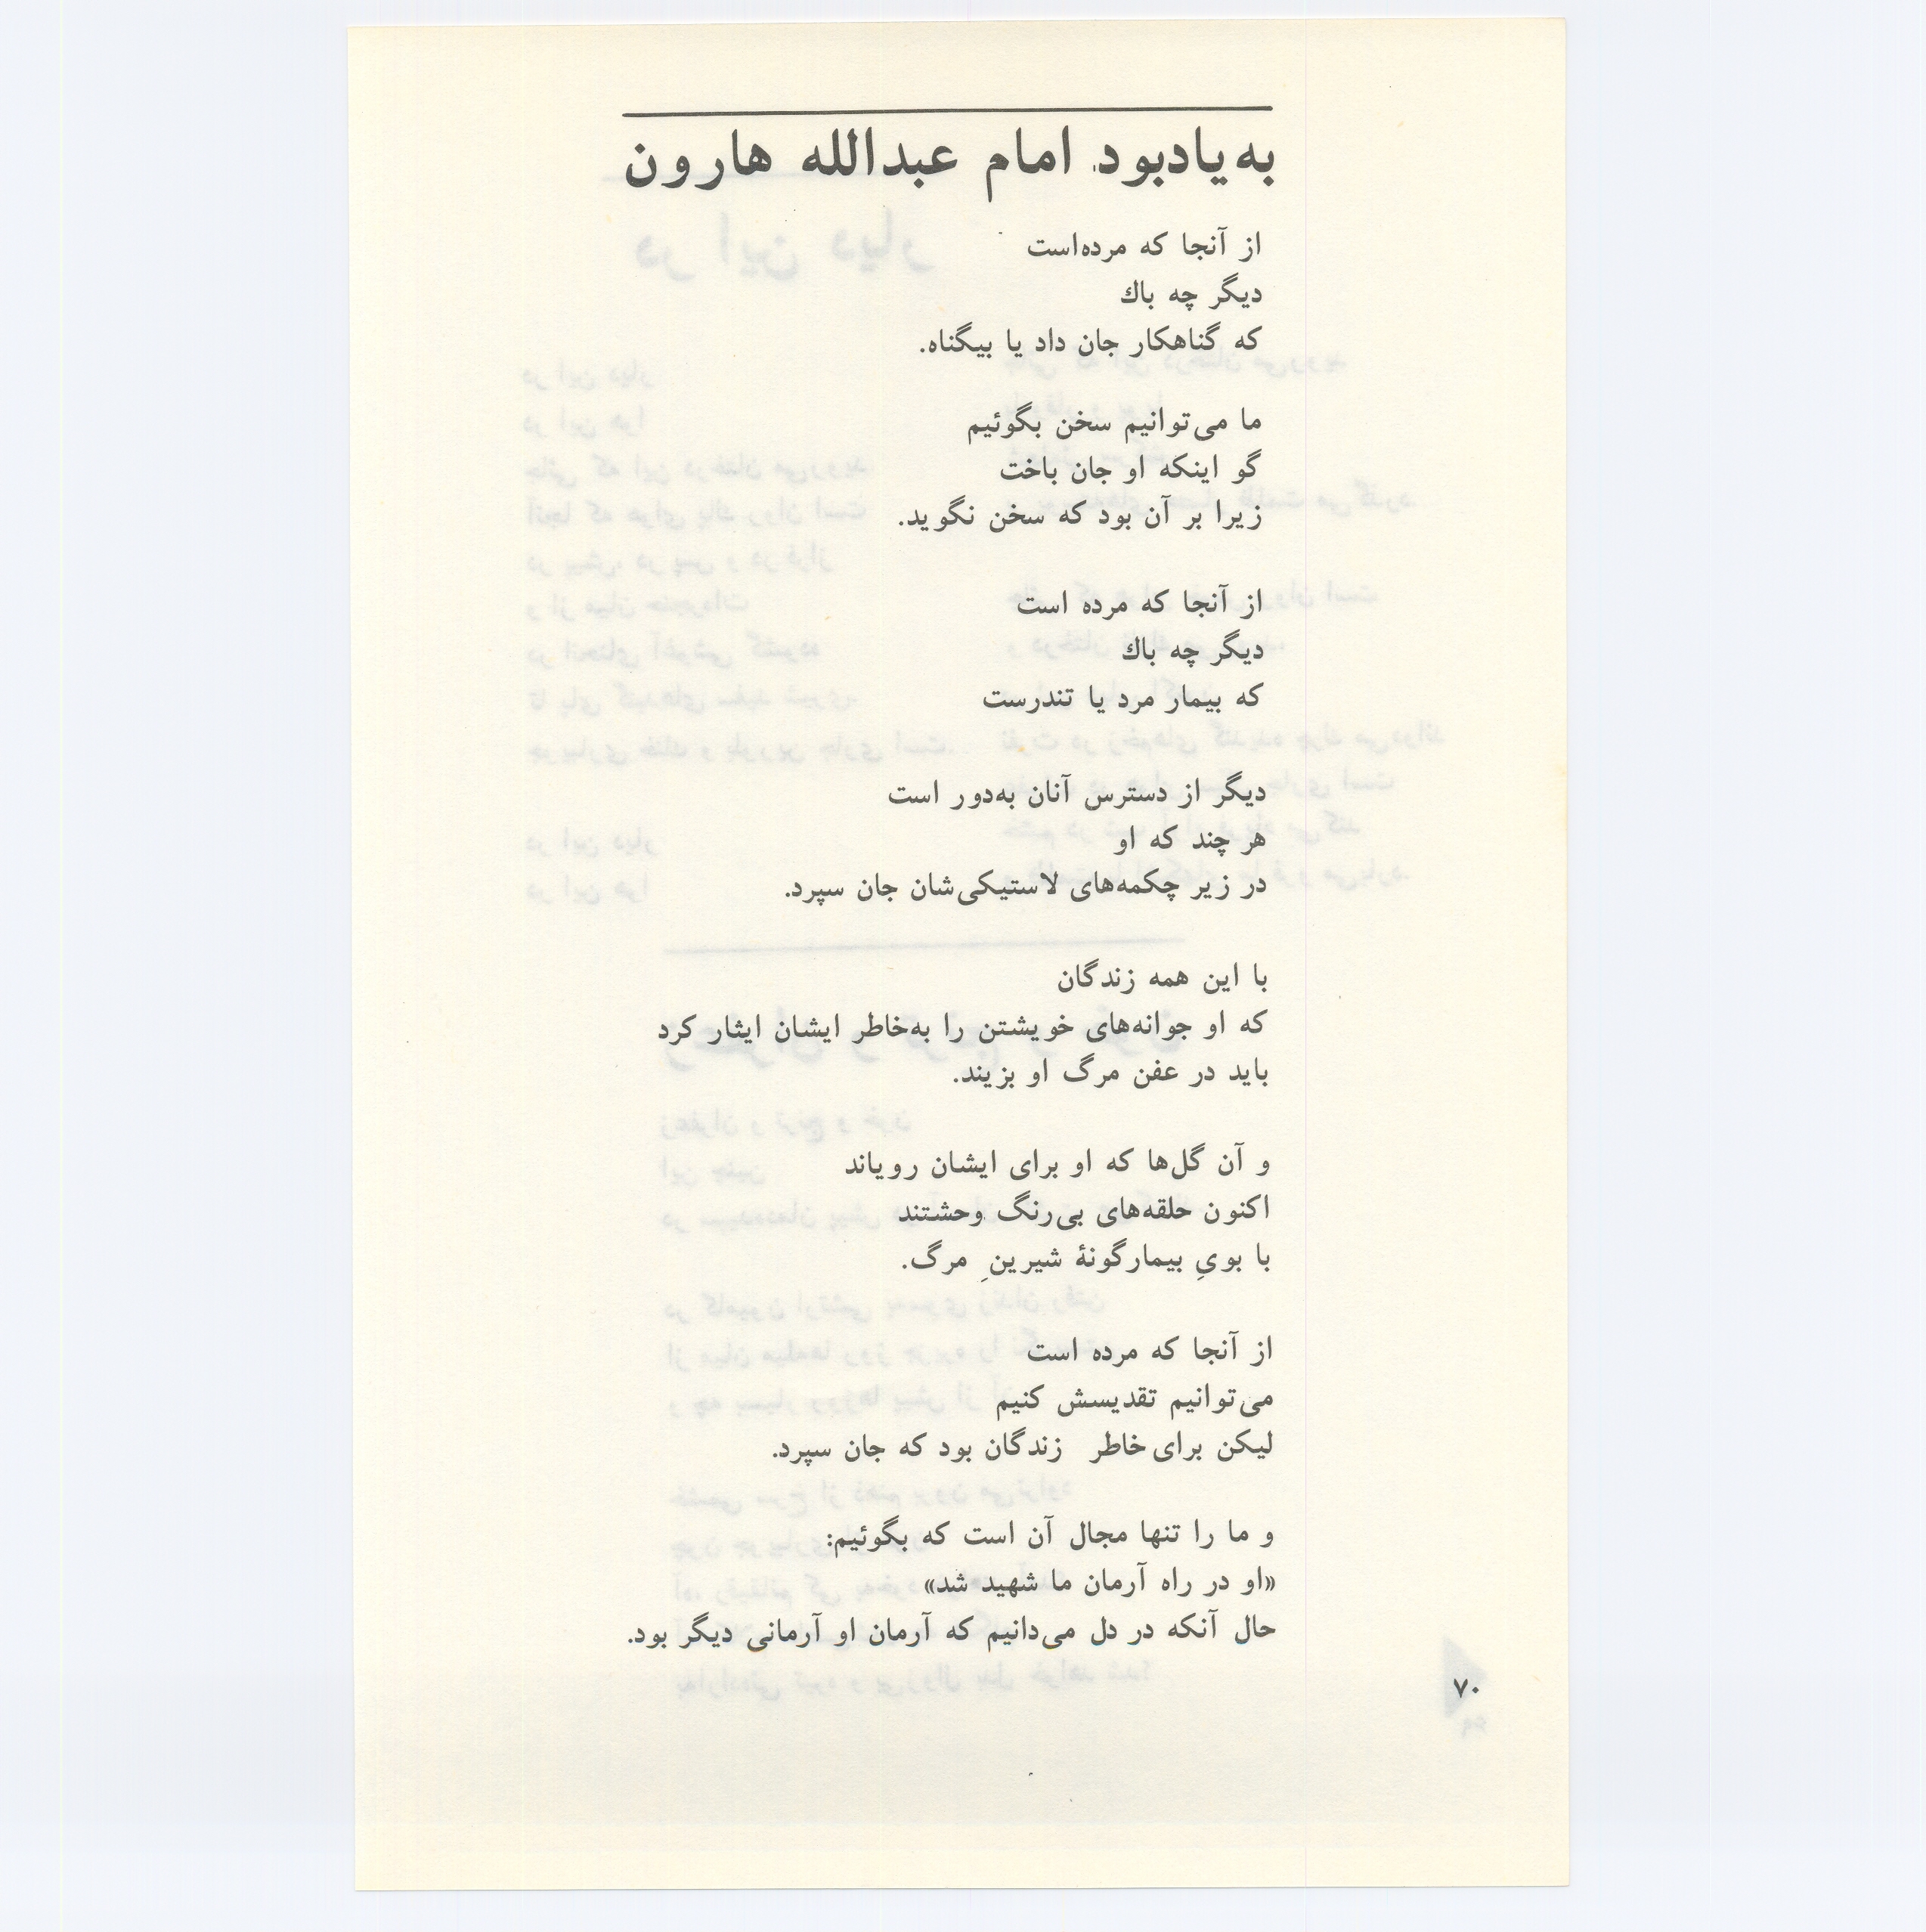 به یادبود امام عبدالله هارون
از آنجا که مرده‌است
دیگر چه باك
که گناهکار جان داد یا بیگناه.
ما می‌توانیم سخن بگوئیم
گو اینکه او جان باخت
زیرا بر آن بود که سخن نگوید.
از آنجا که مرده است
دیگر چه باك
که بیمار مرد یا تندرست
دیگر از دسترس آنان به‌دور است
هر چند که او
در زیر چکمه‌های لاستیکی‌شان جان سپرد.
با این همه زندگان
که او جوانه‌های خویشتن را به‌خاطر ایشان ایثار کرد
باید در عفن مرگ او بزیند.
و آن گل‌ها که او برای ایشان رویاند
اکنون حلقه‌های بی‌رنگ وحشتند
با بویِ بیمارگونهٔ شیرینِ مرگ.
از آنجا که مرده است
می‌توانیم تقدیسش کنیم
لیکن برای خاطر زندگان بود که جان سپرد.
و ما را تنها مجال آن است که بگوئیم:
«او در راه آرمان ما شهید شد»
حال آنکه در دل می‌دانیم که آرمان او آرمانی دیگر بود.
۷۰